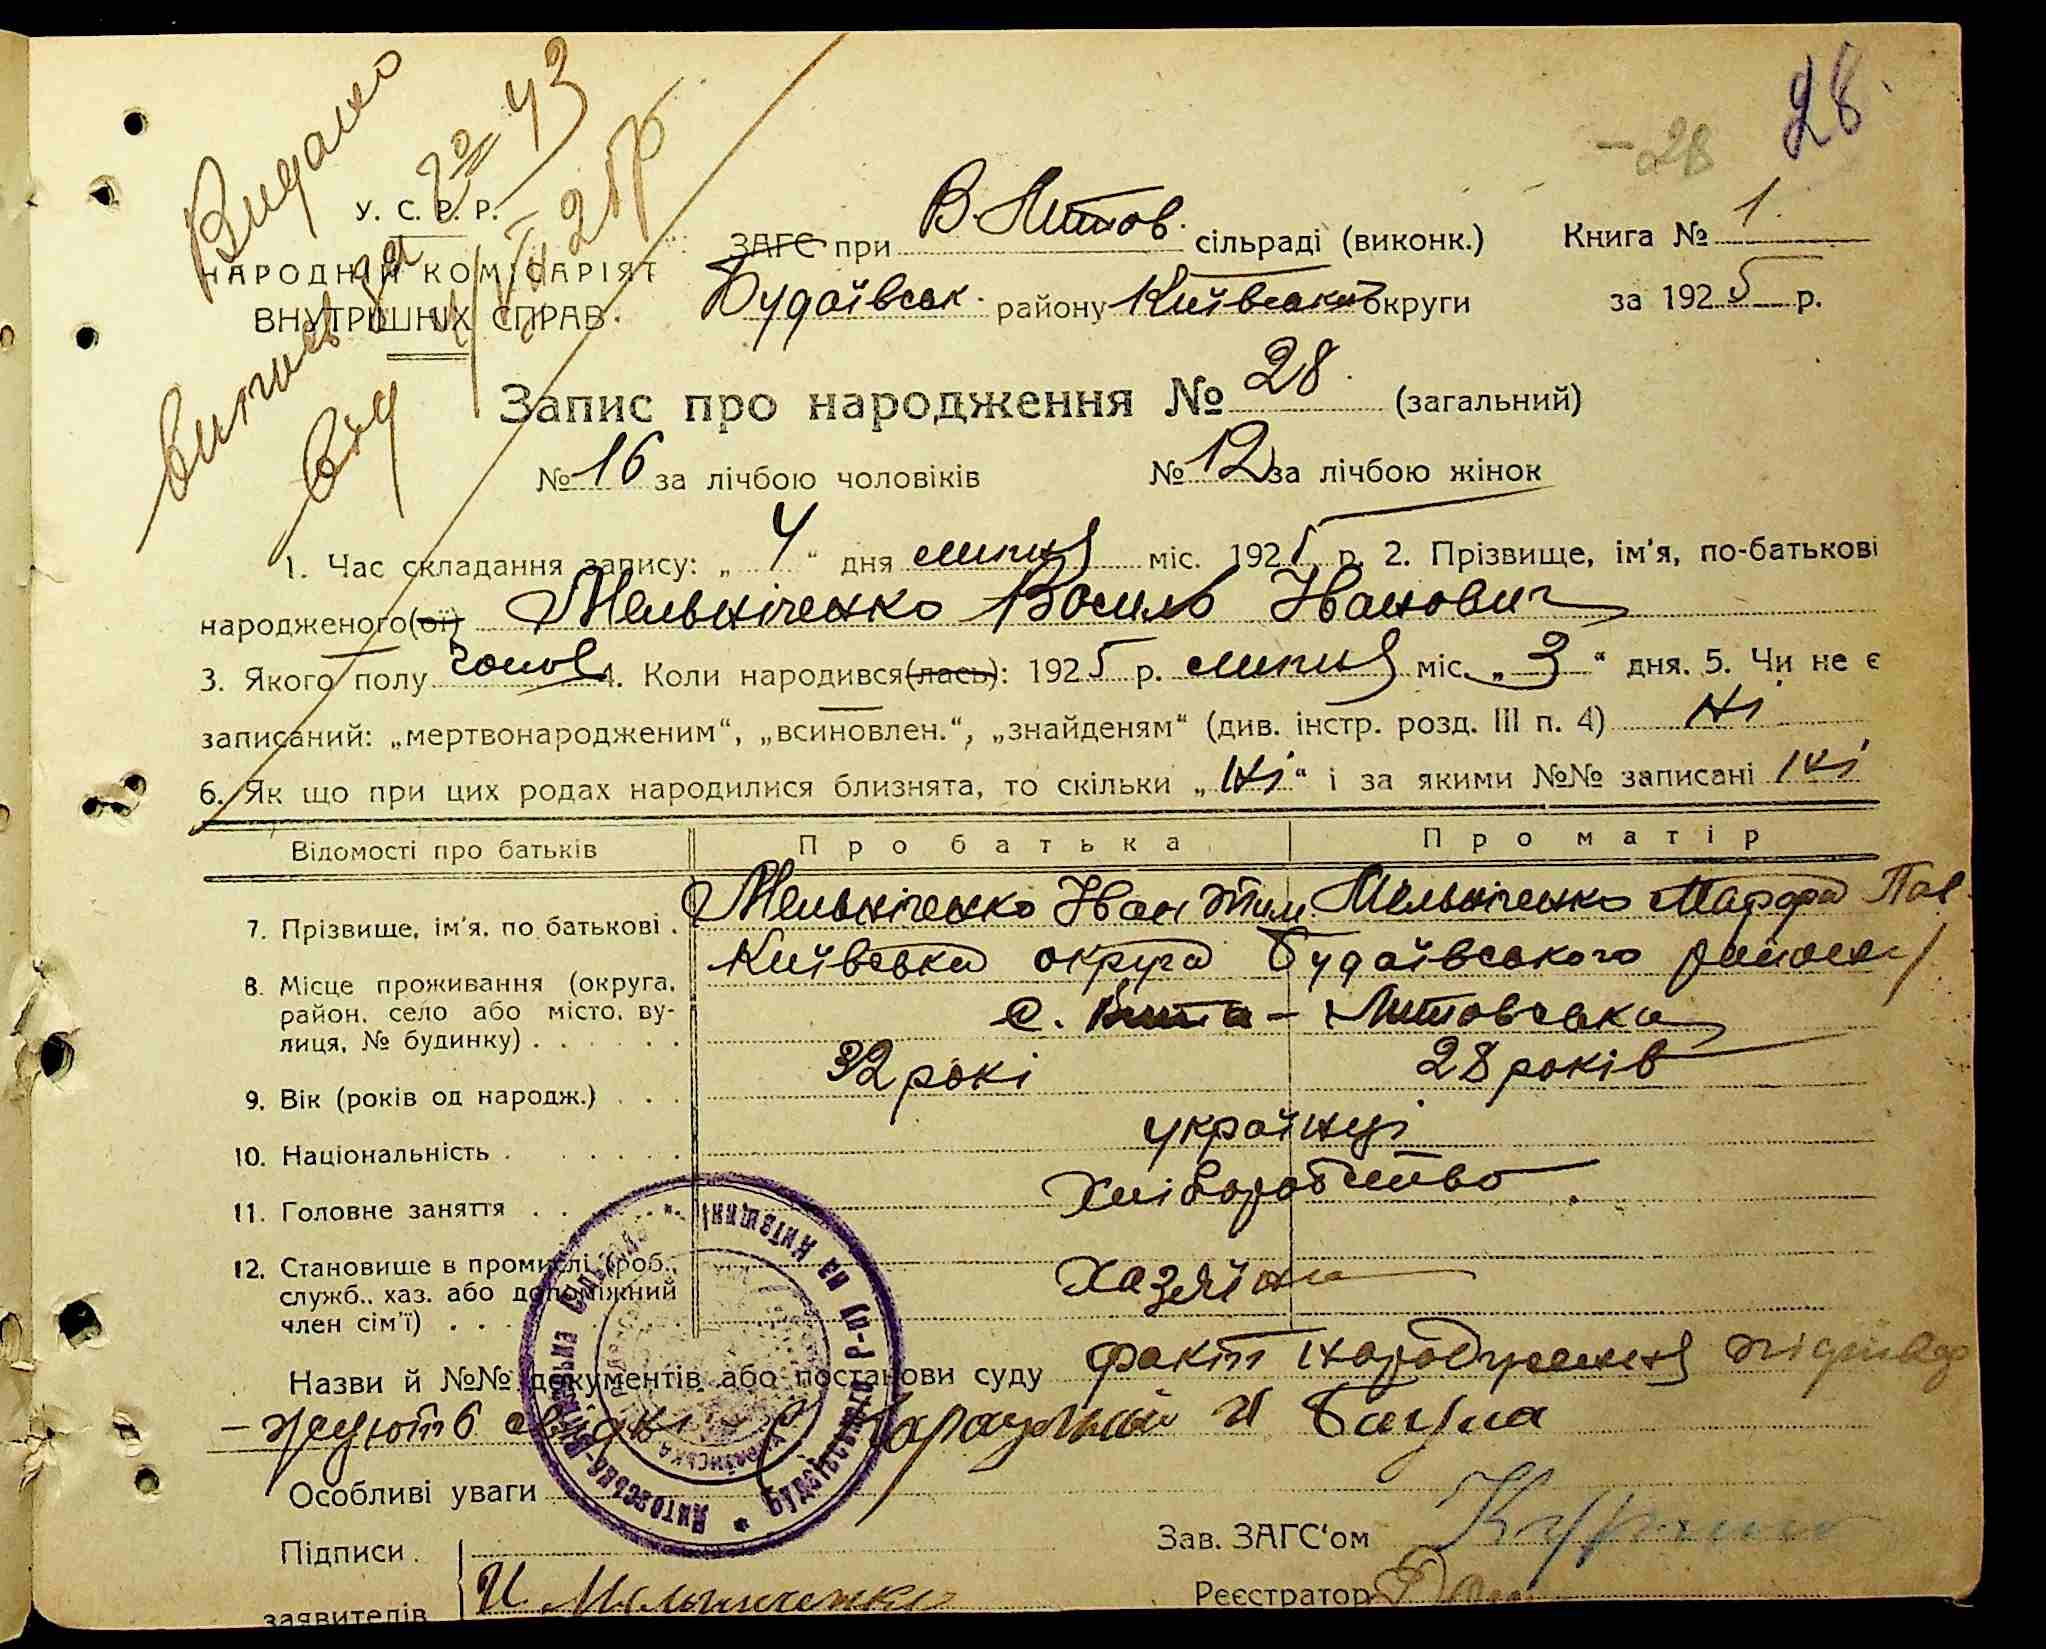 28.
- 28
Видано
витяг за № 43
від 4/VII 25 р
У. С. Р. Р.
НАРОДНІЙ КОМІСАРІЯТ
ВНУТРІШНІХ СПРАВ.
ЗАГС при В. Литов. сільраді (виконк.) Книга № 1.
Будаївськ. району Київської округи за 1925 р.
Запис про народження № 28. (загальний)
№ 16 за лічбою чоловіків № 12 за лічбою жінок
1. Час складання запису: „ 4 “ дня липня міс. 1925 р. 2. Прізвище, ім'я, по-батькові
народженого(ої) Мельніченко Василь Іванович
3. Якого полу чолов 4. Коли народився(лась): 1925 р. липня міс. „ 3 “ дня. 5. Чи не є
записаний: „мертвонародженим“, „всиновлен.“, „знайденям“ (див. інстр. розд. III п. 4) ні
6. Як що при цих родах народилися близнята, то скільки „ ні “ і за якими №№ записані ні
Відомості про батьків Про батька Про матір
7. Прізвище, ім'я, по батькові . Мельніченко Іван Тим Мельніченко Марфа Пав.
8. Місце проживання (округа, Київська округа Будаївського району
район, село або місто, ву- с. Вита - Литовська
лиця, № будинку) . . . . . .
9. Вік (років од народж.) . . . 32 рокі 28 років
10. Національність . . . . . . . українці
11. Головне заняття . . . Хліборобство
12. Становище в промислі (роб.,
служб., хаз. або допоміжний хазяїни
член сім'ї) . . .
Назви й №№ документів або постанови суду факт народження підтвер
- жують свідки Караульний И Багула
Особливі уваги
Підписи Зав. ЗАГС'ом
заявителів И Мельниченко Реєстратор